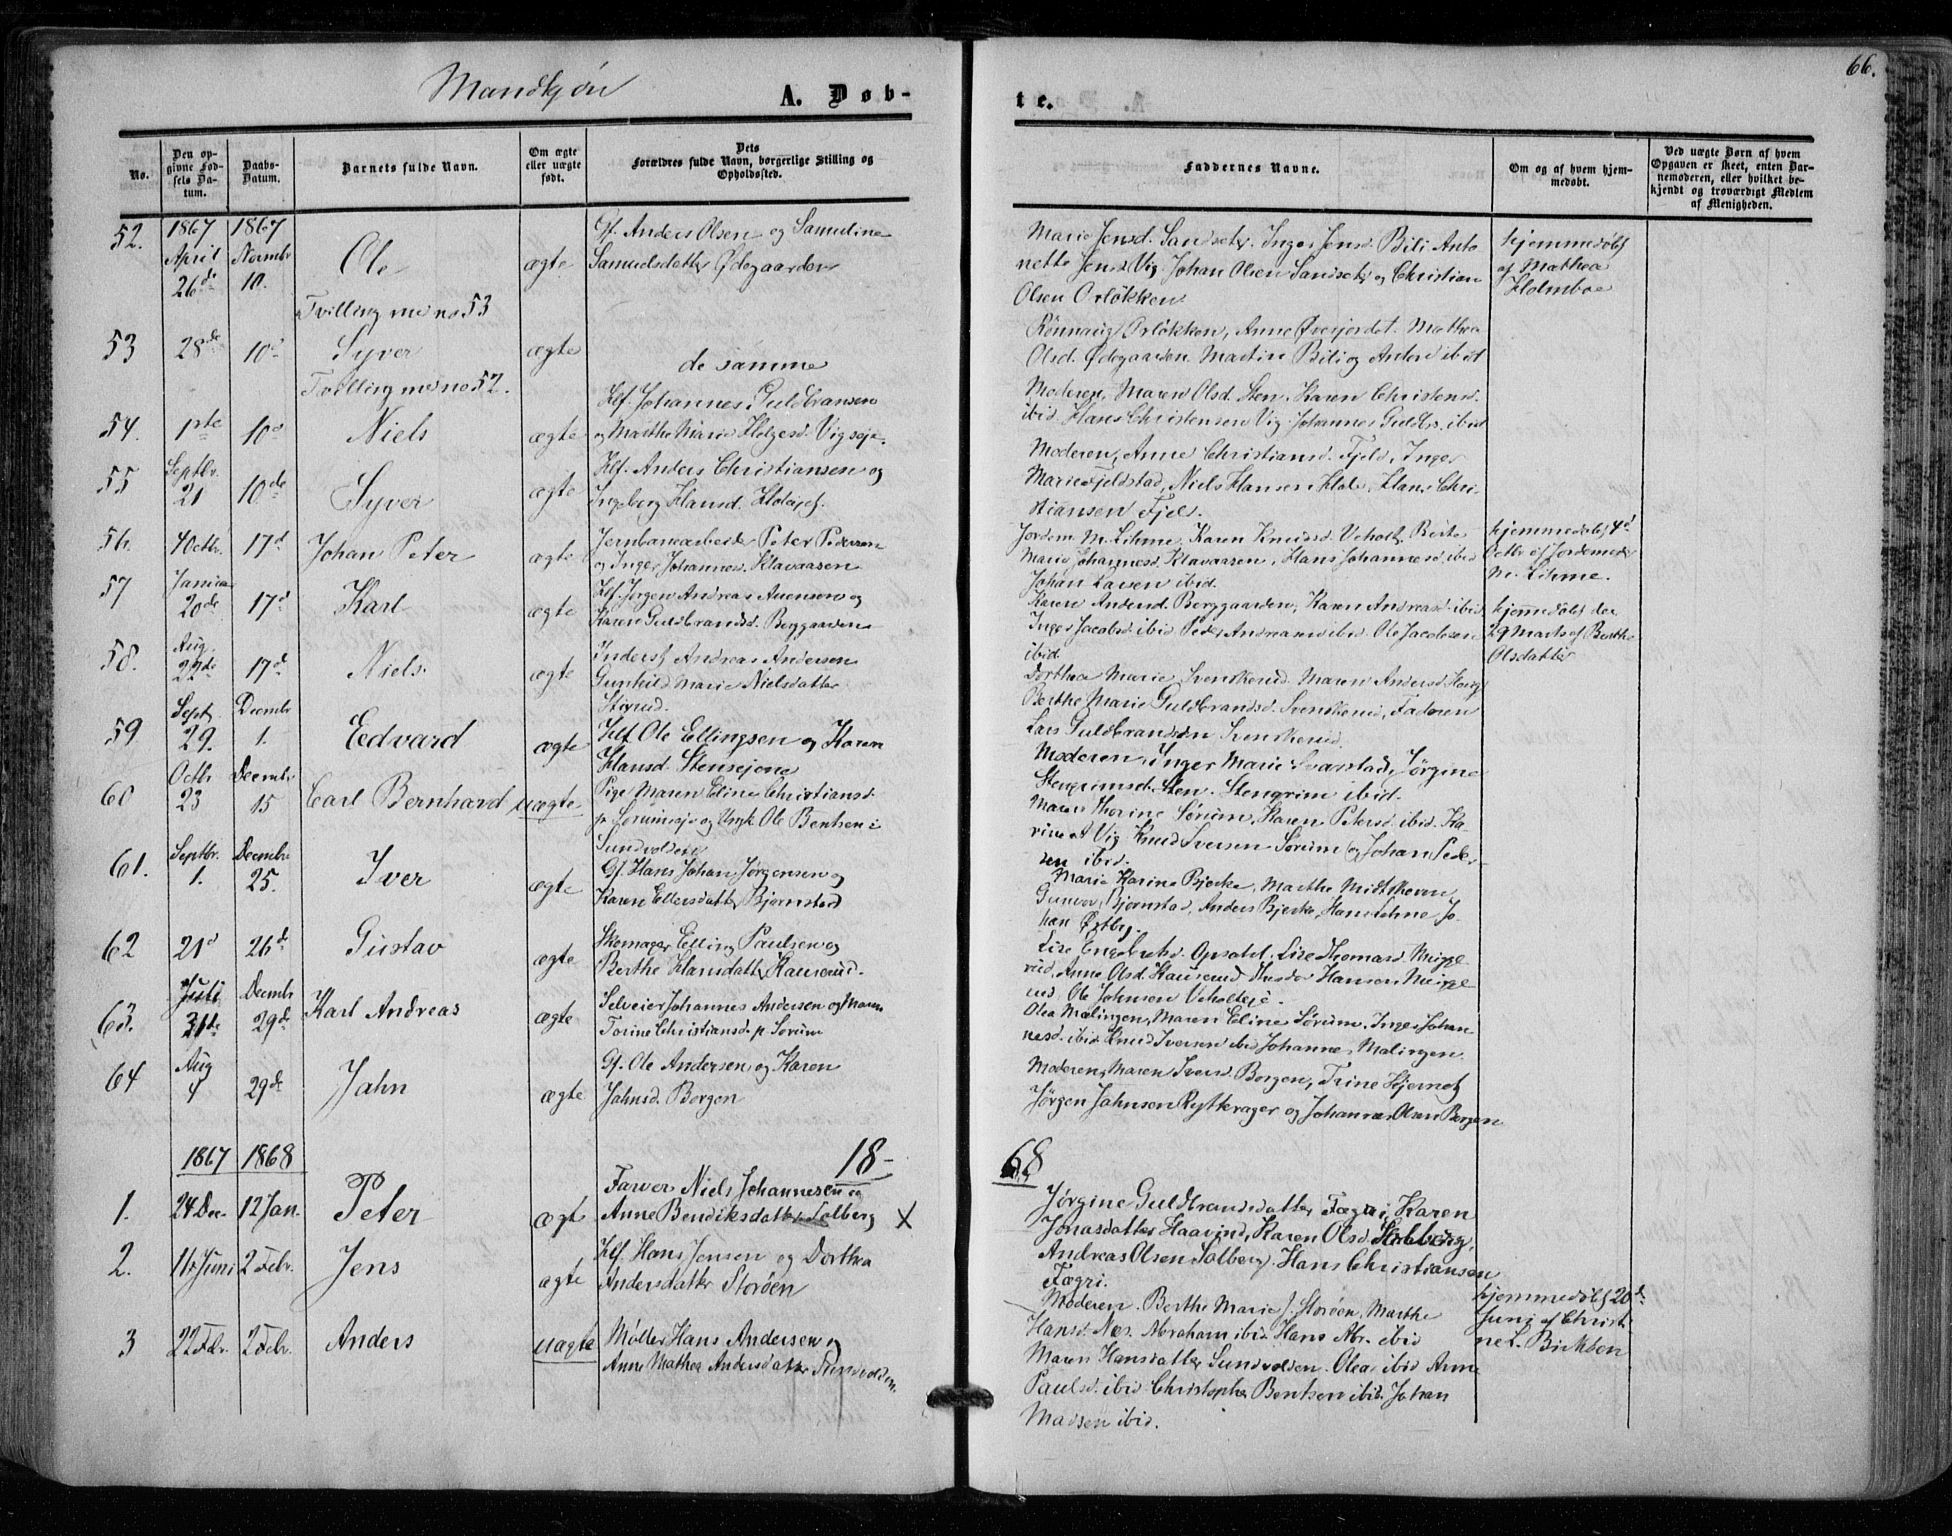 66.
Mandkjøn
A. Døb-
te.
No.
Den op-
givne Fød-
sels Da-
tum.
Daabs-
Datum.
Barnets fulde Navn.
Om ægte
eller uægte
født.
Dets
Forældres fulde Navn, borgerlige Stilling og
Opholdssted.
Faddernes Navne.
Om og af hvem hjem-
medøbt.
Ved uægte Børn af hvem
Opgaven er skeet, enten Bar-
nemoderen, eller hvilket be-
kjendt og troværdigt Medlem
af Menigheden.
52. 1867 April 26de 1867 Novmbr 10. Ole ægte
Tvilling med no 53
Gf. Anders Olsen og Samuline
Samuelsdatter Ødegaarden
Marie Jensd. Sandseter. Inger Jensd. Bili Anto
nette Jensd Vig. Johan Olsen Sandseter og Christian
Olsen Orløkken
hjemmedøbt
af Mathea
Holmboe
53 28de 10d Syver ægte
Tvilling med no 52.
de samme
Rönnaug Orløkken, Anne Øverjordet. Mathea
Olsd. Ødegaarden Martin Bili og Anton ibid
54. 1ste 10d Niels ægte
Hf. Johannes Guldbransen
og Marthe Marie Helgesd. Vigseje.
Moderen, Maren Olsd. Sten, Karen Christensd.
ibid. Hans Christensen Vig. Johannes Guldbr. ibid
55 Septbr. 21 10de Syver ægte
Hf. Anders Christiansen og
Ingeborg Hansd. Holejet.
Moderen, Anne Christiansd. Fjeld, Inger
Marie Fjeldstad, Niels Hansen Hole, Hans Chri-
stiansen Fjeld.
56. 4 Octbr. 17d Johan Peter ægte
Jernbanearbeider Peter Pedersen
og Inger Johannesd. Klavaasen
Jordem. M. Lihme, Karen Knudsd. Veholt, Berte
Marie Johannesd. Klavaasen, Hans Johannesd ibid
Johan Larsen ibid.
hjemmedøbt 4d
Octbr af Jordemoder
M. Lihme.
57 Januar 20de 17d Karl ægte
Hf. Jørgen Andreas Auensen og
Karen Guldbrandsd. Borggaarden
Karen Andersd. Borggaarden, Karen Andreasd. ibid
Inger Jacobsd ibid Peder Andreasen ibid. Ole Jacobsen
ibid.
hjemmedøbt den
29 Marts af Berthe
Olsdatter
58. Aug. 22de 17d Niels. ægte
Inderst Andreas Andersen
Gunhild Marie Nielsdatter
Stixrud.
Dorthea Marie Svenskerud. Maren Andersd. Haug
Berthe Marie Guldbrandsd. Svenskerud, Faderen
Lars Guldbrandsen Svenskerud.
59 Sept. 29. Decmbr 1. Eedvard ægte
Hf. Ole Ellingsen og Karen
Hansd. Stensejene
Moderen, Inger Marie Svarstad, Jørgine
Stengrimsd. Sten. Stengrim ibid.
60 Octbr 23 Decmbr 15 Carl Bernhard uægte
Pige Maren Eline Christiansd.
p. Sørumseje og Ungk Ole Bentsen i
Sundvolden
Maren Thorine Sørum, Karen Petersd. ibid. Ka-
rine A Vig Knud Iversen Sørum og Johan Peder-
sen ibid.
61. Septbr. 1. Decmbr 25. Iver ægte
Gf. Hans Johan Jørgensen og
Karen Ellersdatter Bjørnstad
Marie Karine Bjerke, Marthe Midtskoven
Gunvor Bjørnstad, Anders Bjerke, Hans Lehne Jo-
han Østby.
62 21d 26de Gustav ægte
Skomager Elling Paulsen og
Berthe Hansdatter Hauserud.
Lise Engebretsd. Opsahl. Lise Thomasd. Muggerud
Anne Olsd. Hauserud Theodor Hansen Muggerud
Ole Johnsen Veholteje.
63. Juli 31te Decmbr 29de Karl Andreas ægte
Selveier Johannes Andersen og Maren
Torine Christiansd. p. Sørum
Olea Malingen, Maren Eline Sørum, Inger Johan
nesd. ibid Knud Iversen ibid Johannes Malingen
64 Aug 4 29de Jahn ægte
Gf. Ole Andersen og Karen
Jahnsd. Borgen
Moderen, Maren Iversd. Borgen, Trine Hjernet
Jørgen Jahnsen Rytterager og Johannes Olsen Borgen
1867 1868 18- 68
1. 24 Dec. 12 Jan. Peter ægte
Farver Niels Johannesen og
Anne Bendiksdatter Solberg X
Jørgine Guldbrandsdatter Fægri, Karen
Jonasdatter Haavind, Karen Olsd. Solberg,
Andreas Olsen Solberg. Hans Christiansen
Fægri.
2. 16 Juni 2 Febr. Jens ægte
Hf. Hans Jensen og Dorthea
Andersdatter Storøen
Moderen. Berthe Marie J. Storøen, Marthe
Hansd. Næs. Abraham ibid. Hans Abr. ibid
hjemmedøbt 20de
Juni af Christi
ne L. Bicksen
3 22 Febr. 2 Febr. Anders uægte
Møller Hans Andersen og
Anne Mathea Andersdatter Sundvolden.
Maren Hansdatter Sundvolden. Olea ibid Anne
Paulsd. ibid Christopher Bentsen ibid. Johan
Madsen ibid.